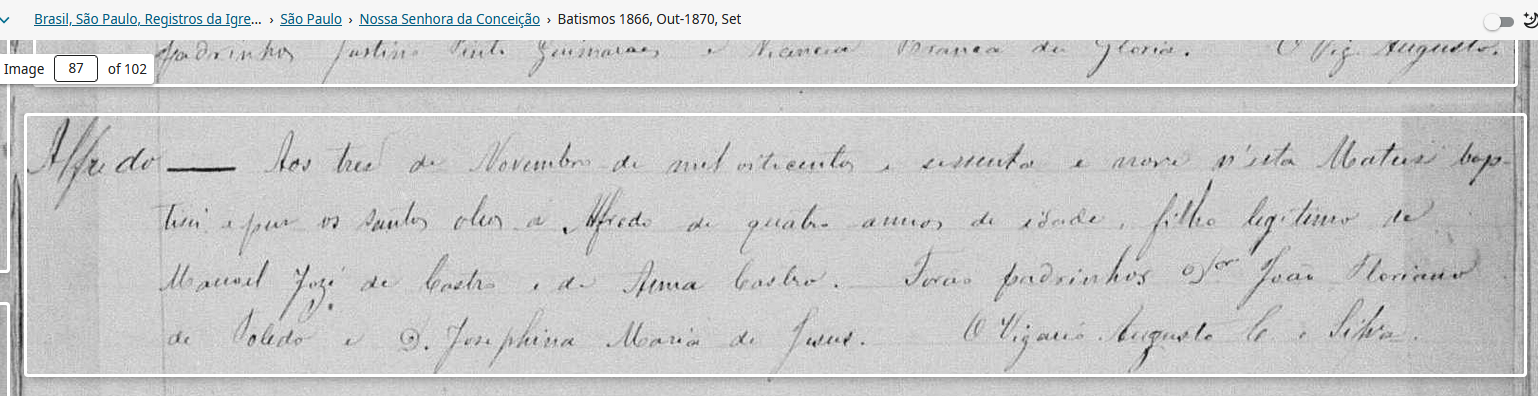 Brasil, São Paulo, Registros da Igre... › São Paulo › Nossa Senhora da Conceição › Batismos 1866, Out-1870, Set
Image 87 of 102
padrinhos Justino Pinto Guimaraes e Branca da Gloria. O Vig. Augusto.
Alfredo — Aos tres de Novembro de mil oitocentos e sessenta e nove n'esta Matris bap-
tisei e pus os santos oleos a Alfredo de quatro annos de idade, filho legitimo de
Manoel José de Castro e de Anna Castro. Forão padrinhos João Floriano
de Toledo e D. Josephina Maria de Jesus. O Vigario Augusto C. e Silva.